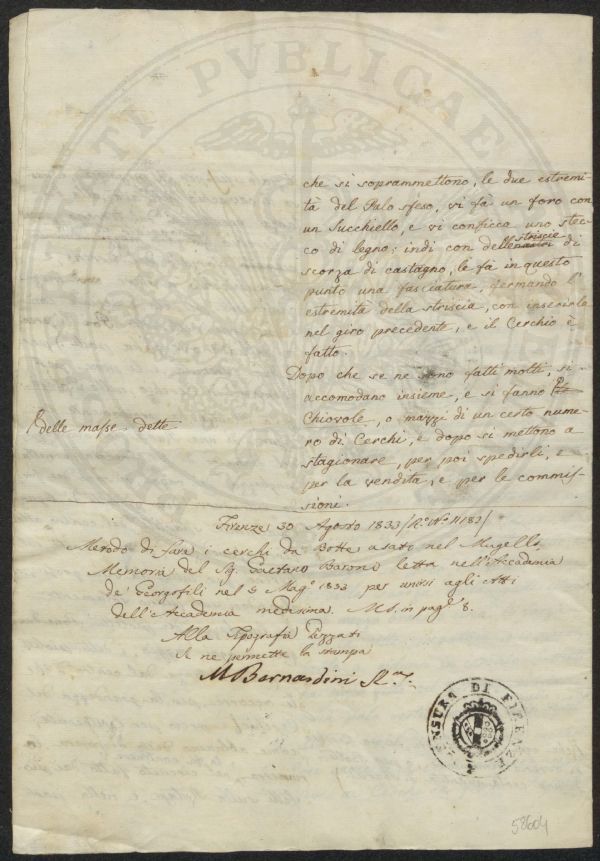 che si soprammettono, le due estremi-
tà del Palo sfeso, vi fa un foro con
un Succhiello, e vi conficca uno stec-
co di legno; indi con delle nastri striscie di
scorza di castagno, le fa in questo
punto una fasciatura, fermando l'
estremità della striscia, con inserirla
nel giro precedente, e il Cerchio è
fatto.
Dopo che se ne sono fatti molti, si
accomodano insieme, e si fanno
delle masse dette
Chiovole, o mazzi di un certo nume-
ro di Cerchi, e dopo si mettono a
stagionare, per poi spedirli, e
per la vendita, e per le commis-
sioni.
Firenze 30 Agosto 1833 / R.o N.o 11182 /
Metodo di fare i cerchi da Botte usato nel Mugello,
Memoria del Sig. Gaetano Baroni letta nell'Accademia
de' Georgofili nel 5 Mag.o 1833 per unirsi agli Atti
dell'Accademia medesima. MS. in pag.e 8.
Alla Tipografia Pezzati
Se ne permette la stampa
M Bernardini
CENSURA DI FIRENZE
58604
PUBLICAE